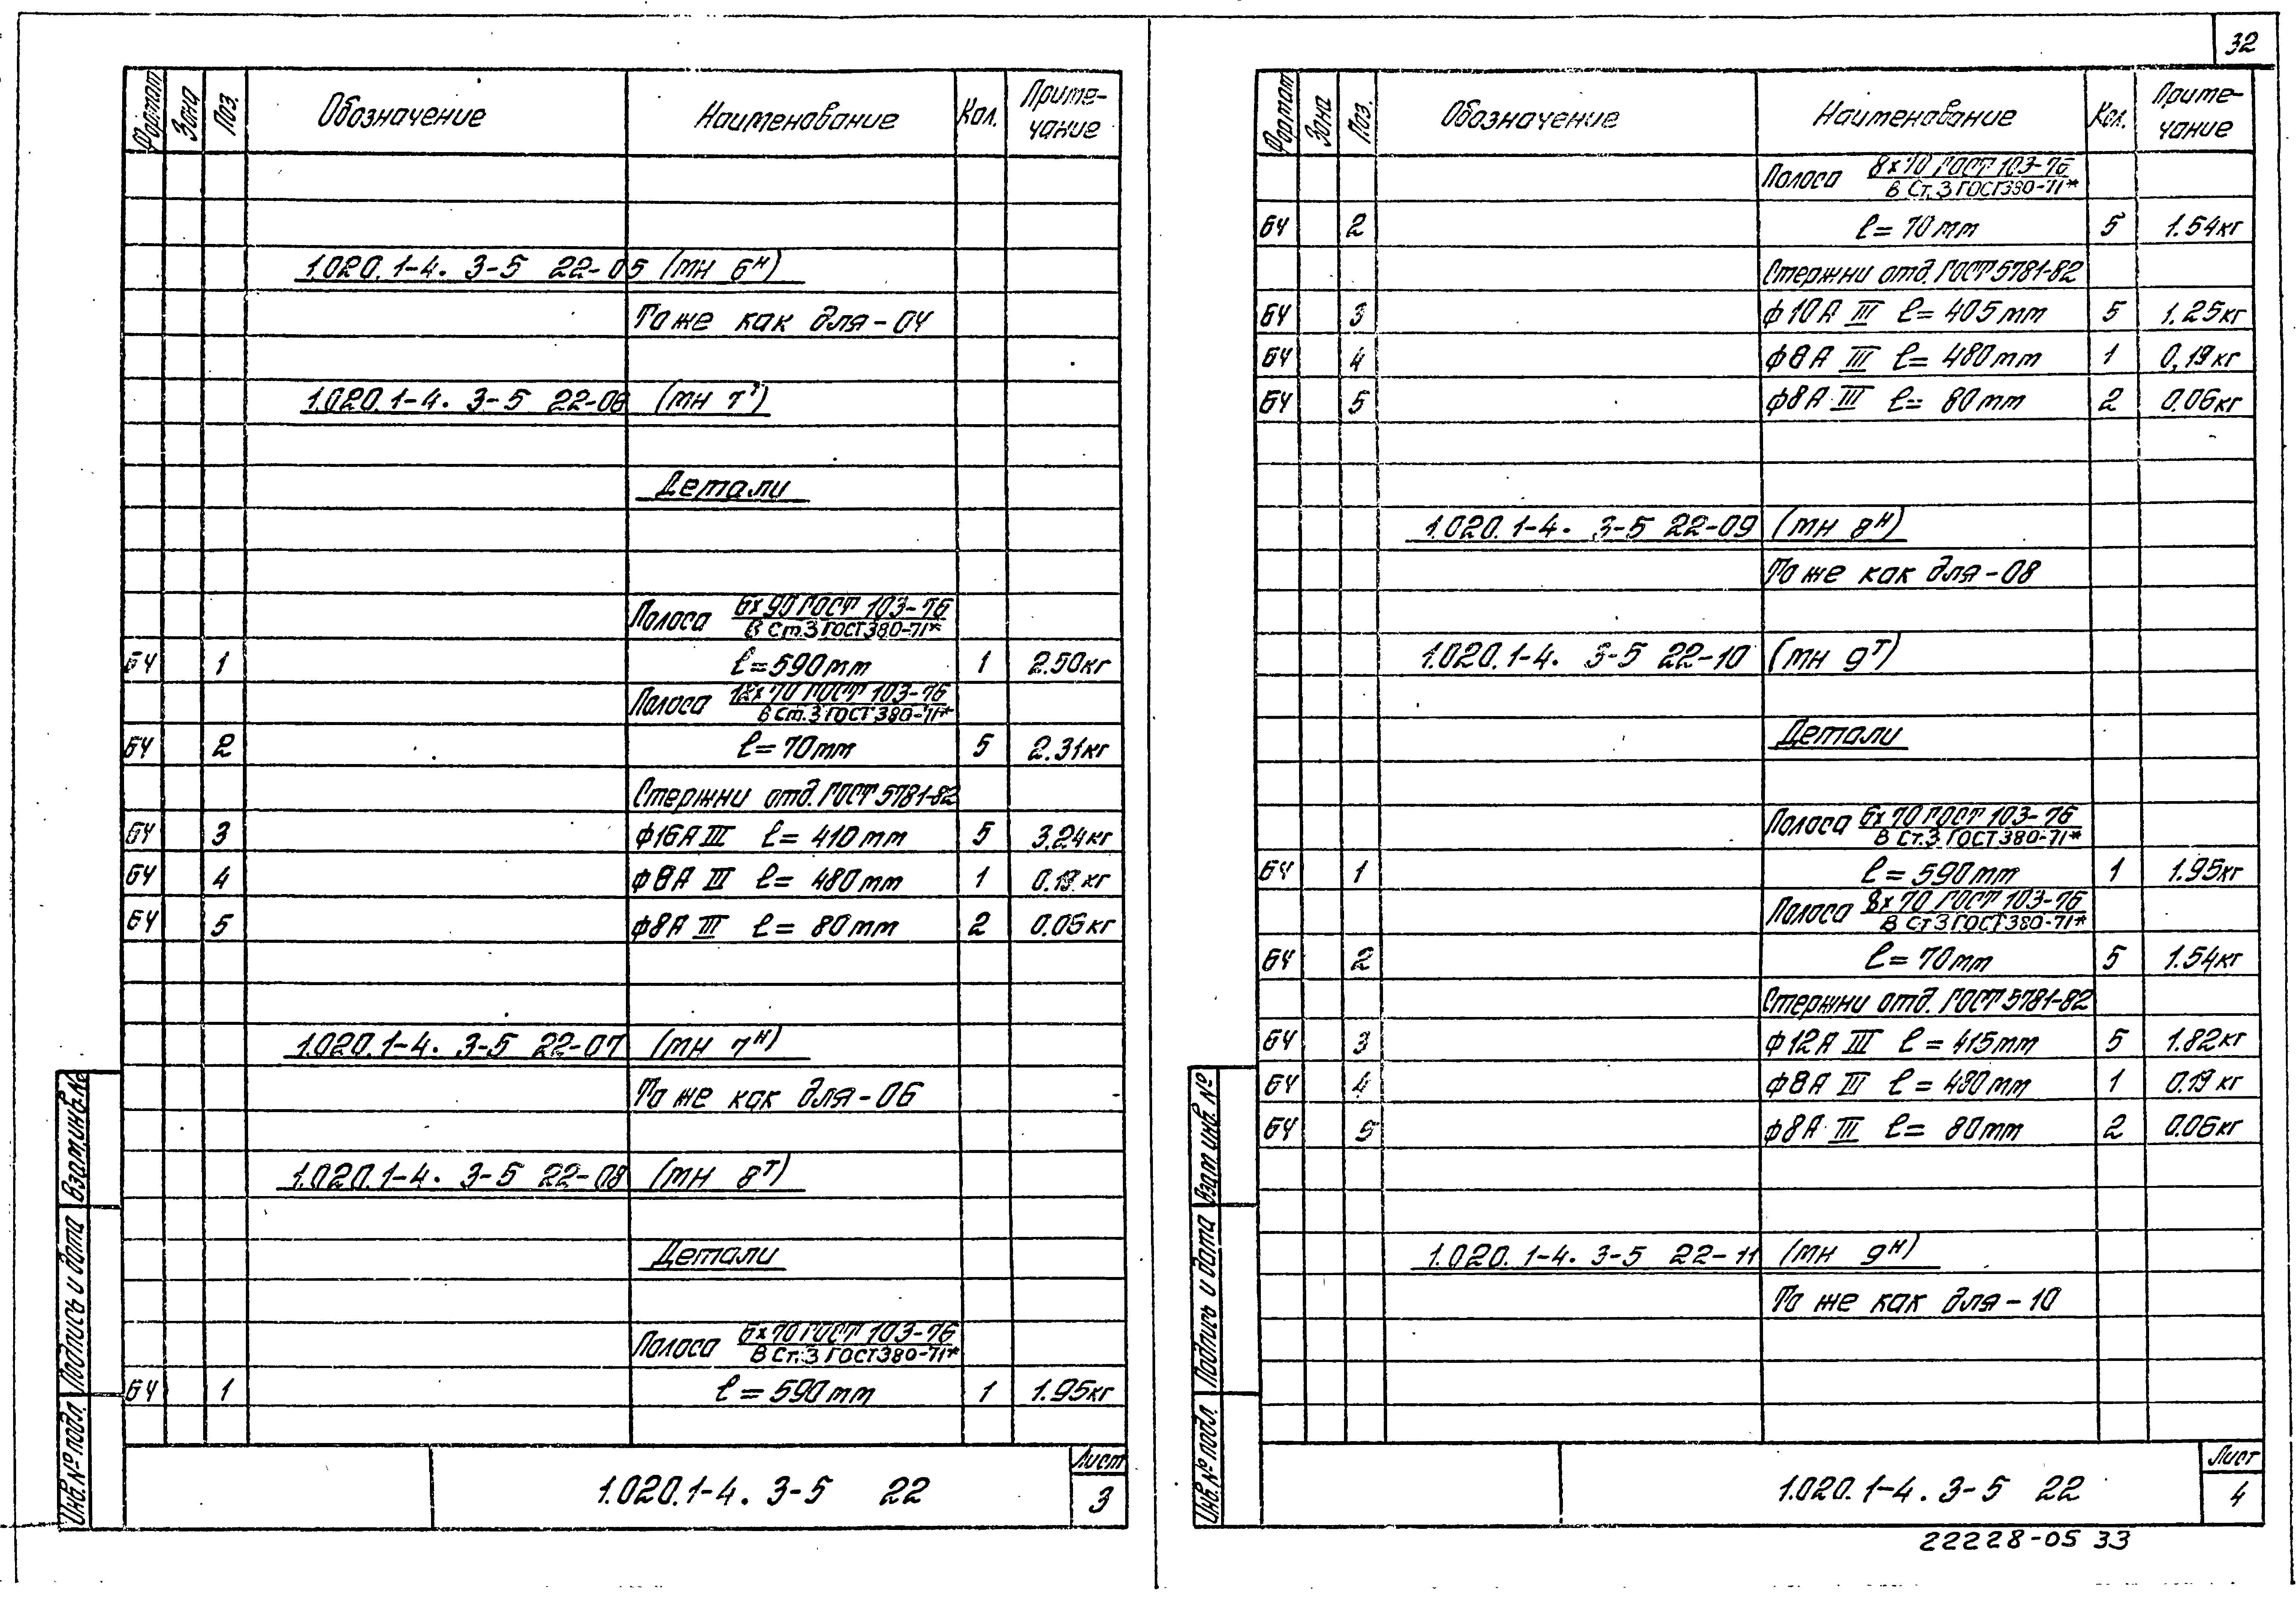 32
Формат Зона Поз. Обозначение Наименование Кол. Приме-
чание
1.020.1-4. 3-5 22-05 (МН 6ᴴ)
То же как для-04
1.020.1-4. 3-5 22-06 (МН 7ᵀ)
Детали
Полоса 6х90 ГОСТ 103-76
В Ст.3 ГОСТ 380-71*
БЧ 1 ℓ=590мм 1 2.50кг
Полоса 12х70 ГОСТ 103-76
В Ст.3 ГОСТ 380-71*
БЧ 2 ℓ=70мм 5 2.31кг
Стержни отд. ГОСТ 5781-82
БЧ 3 ф16АIII ℓ= 410мм 5 3.24кг
БЧ 4 ф8А III ℓ= 480мм 1 0.19 кг
БЧ 5 ф8А III ℓ= 80мм 2 0.06кг
1.020.1-4. 3-5 22-07 (МН 7ᴴ)
То же как для-06
1.020.1-4. 3-5 22-08 (МН 8ᵀ)
Детали
Полоса 6х70 ГОСТ 103-76
В Ст.3 ГОСТ 380-71*
БЧ 1 ℓ=590мм 1 1.95кг
Инв.№ подл. Подпись и дата Взам.инв.№
1.020.1-4. 3-5 22
Лист
3
Формат Зона Поз. Обозначение Наименование Кол. Приме-
чание
Полоса 8х70 ГОСТ 103-76
В Ст.3 ГОСТ 380-71*
БЧ 2 ℓ= 70мм 5 1.54кг
Стержни отд. ГОСТ 5781-82
БЧ 3 ф10А III ℓ= 405мм 5 1.25кг
БЧ 4 ф8А III ℓ= 480мм 1 0,19кг
БЧ 5 ф8А III ℓ= 80мм 2 0.06кг
1.020.1-4. 3-5 22-09 (МН 8ᴴ)
То же как для-08
1.020.1-4. 3-5 22-10 (МН 9ᵀ)
Детали
Полоса 6х70 ГОСТ 103-76
В Ст.3 ГОСТ 380-71*
БЧ 1 ℓ=590мм 1 1.95кг
Полоса 8х70 ГОСТ 103-76
В Ст3 ГОСТ 380-71*
БЧ 2 ℓ=70мм 5 1.54кг
Стержни отд. ГОСТ 5781-82
БЧ 3 ф12А III ℓ=415мм 5 1.82кг
БЧ 4 ф8А III ℓ=480мм 1 0.19 кг
БЧ 5 ф8А III ℓ= 80мм 2 0.06кг
1.020.1-4. 3-5 22-11 (МН 9ᴴ)
То же как для-10
Инв.№ подл. Подпись и дата Взам инв. №
1.020.1-4. 3-5 22
Лист
4
22228-05 33